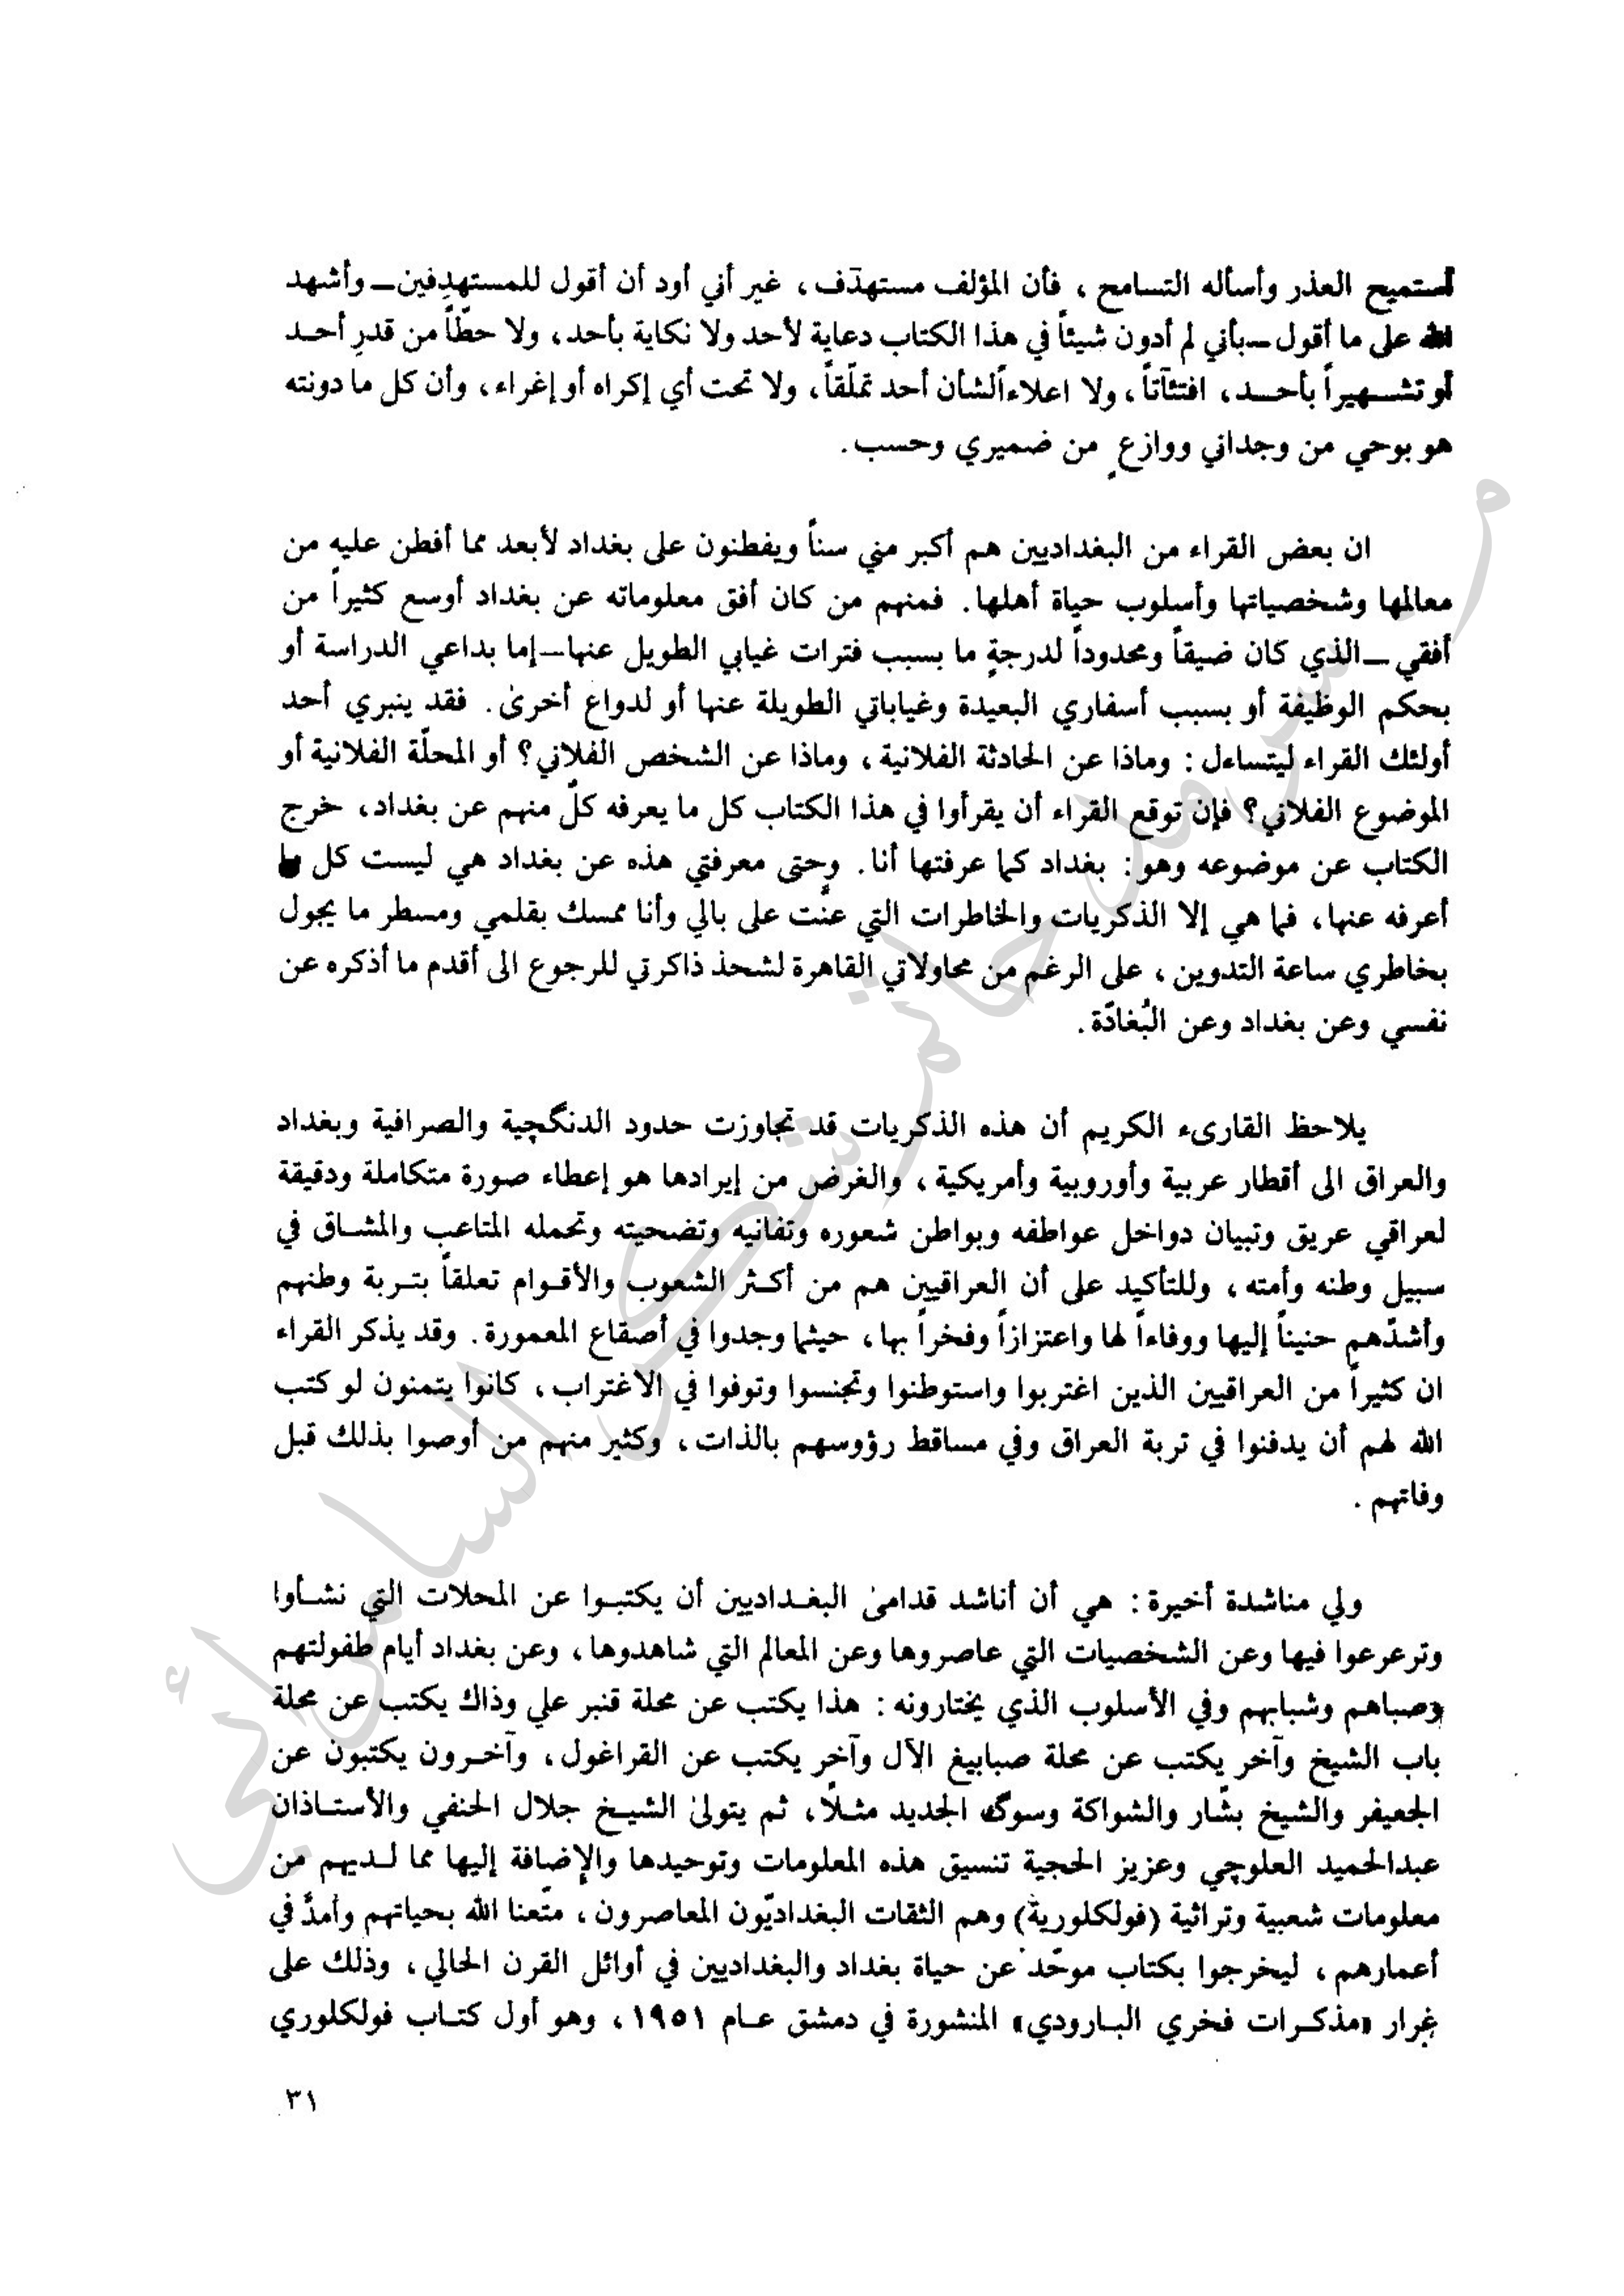 أستميح العذر وأسأله التسامح ، فأن المؤلف مستهدَف ، غير أني أود أن أقول للمستهدِفين ــ وأشهد
الله على ما أقول ــ بأني لم أدون شيئاً في هذا الكتاب دعاية لأحد ولا نكاية بأحد ، ولا حطّاً من قدرِ أحــد
أو تشــهيراً بأحــد ، افتئآتاً ، ولا اعلاءاً لشأن أحد تملّقاً ، ولا تحت أي إكراه أو إغراء ، وأن كل ما دونته
هو بوحي من وجداني ووازعٍ من ضميري وحسب .
ان بعض القراء من البغداديين هم أكبر مني سناً ويفطنون على بغداد لأبعد مما أفطن عليه من
معالمها وشخصياتها وأسلوب حياة أهلها . فمنهم من كان أفق معلوماته عن بغداد أوسع كثيراً من
أفقي ــ الذي كان ضيقاً ومحدوداً لدرجةٍ ما بسبب فترات غيابي الطويل عنها ــ إما بداعي الدراسة أو
بحكم الوظيفة أو بسبب أسفاري البعيدة وغياباتي الطويلة عنها أو لدواع أخرىٰ . فقد ينبري أحد
أولئك القراء ليتساءل : وماذا عن الحادثة الفلانية ، وماذا عن الشخص الفلاني؟ أو المحلّة الفلانية أو
الموضوع الفلاني؟ فإن توقع القراء أن يقرأوا في هذا الكتاب كل ما يعرفه كلّ منهم عن بغداد ، خرج
الكتاب عن موضوعه وهو : بغداد كما عرفتها أنا . وحتى معرفتي هذه عن بغداد هي ليست كل ما
أعرفه عنها ، فما هي إلا الذكريات والخاطرات التي عنّت على بالي وأنا ممسك بقلمي ومسطر ما يجول
بخاطري ساعة التدوين ، على الرغم من محاولاتي القاهرة لشحذ ذاكرتي للرجوع الى أقدم ما أذكره عن
نفسي وعن بغداد وعن البُغادّة .
يلاحظ القارىء الكريم أن هذه الذكريات قد تجاوزت حدود الدنگچية والصرافية وبغداد
والعراق الى أقطار عربية وأوروبية وأمريكية ، والغرض من إيرادها هو إعطاء صورة متكاملة ودقيقة
لعراقي عريق وتبيان دواخل عواطفه وبواطن شعوره وتفانيه وتضحيته وتحمله المتاعب والمشـاق في
سبيل وطنه وأمته ، وللتأكيد على أن العراقيين هم من أكـثر الشعوب والأقـوام تعلقاً بتـربة وطنهم
وأشدّهم حنيناً إليها ووفاءاً لها واعتزازاً وفخراً بها ، حيثما وجدوا في أصقاع المعمورة . وقد يذكر القراء
ان كثيراً من العراقيين الذين اغتربوا واستوطنوا وتجنسوا وتوفوا في الاغتراب ، كانوا يتمنون لو كتب
الله لهم أن يدفنوا في تربة العراق وفي مساقط رؤوسهم بالذات ، وكثير منهم من أوصوا بذلك قبل
وفاتهم .
ولي مناشدة أخيرة : هي أن أناشد قدامىٰ البغـداديين أن يكتبـوا عن المحلات التي نشـأوا
وترعرعوا فيها وعن الشخصيات التي عاصروها وعن المعالم التي شاهدوها ، وعن بغداد أيام طفولتهم
وصباهم وشبابهم وفي الأسلوب الذي يختارونه : هذا يكتب عن محلة قنبر علي وذاك يكتب عن محلة
باب الشيخ وآخر يكتب عن محلة صبابيغ الآل وآخر يكتب عن القراغول ، وآخـرون يكتبون عن
الجعيفر والشيخ بشّار والشواكة وسوگ الجديد مثـلاً ، ثم يتولىٰ الشيـخ جلال الحنفي والأستـاذان
عبدالحميد العلوچي وعزيز الحجية تنسيق هذه المعلومات وتوحيدها والإضافة إليها مما لـديهم من
معلومات شعبية وتراثية (فولكلورية) وهم الثقات البغداديّون المعاصرون ، متّعنا الله بحياتهم وأمدّ في
أعمارهم ، ليخرجوا بكتاب موحّد عن حياة بغداد والبغداديين في أوائل القرن الحالي ، وذلك على
غرار «مذكـرات فخري البـارودي» المنشورة في دمشق عـام ١٩٥١ ، وهو أول كتـاب فولكلوري
٣١